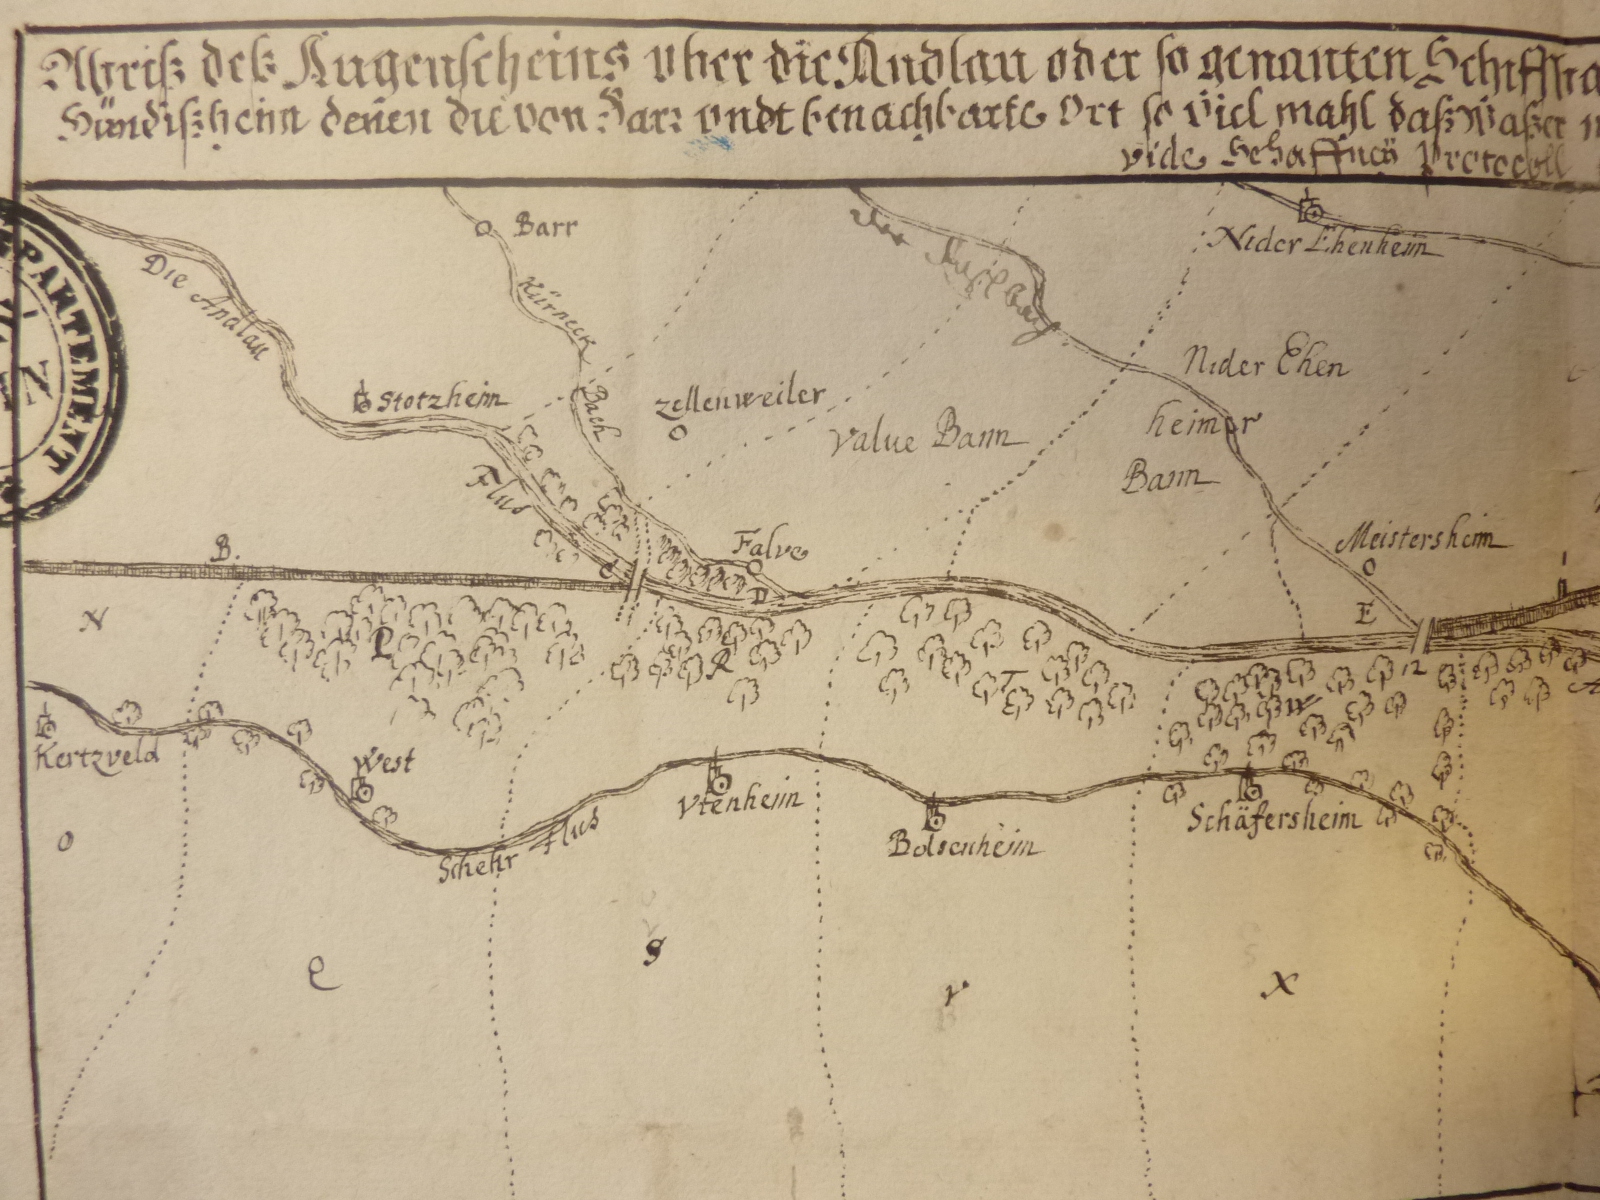 Abriß deß Augenscheins vber die Andlau oder so genanten Schiffra
Hündißheim denen die von Barr vndt benachbarte Ort so viel mahl daß Waßer
vide Schaffneÿ Protocoll
PARTEMENT
Barr
Nider Ehenheim
Die Andlau
Kürneck
Bach
Stotzheim
Zellenweiler
Value Bann
Nider Ehen
heimer
Bann
Flus
Falve
Meistersheim
B.
C
D
E
N
P
R
T
W
12
A
Kertzveld
West
Vtenheim
Bolsenheim
Schäfersheim
Schehr Flus
O
Q
S
V
X